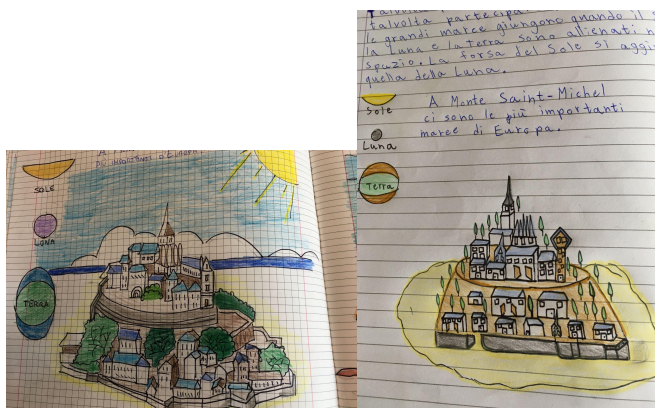 SOLE
LUNA
TERRA
talvolta
le grandi maree giungono quando il
la Luna e la terra sono allienati
spazio. La forsa del Sole si
quella della Luna.
A Monte Saint-Michel
ci sono le più importanti
maree di Europa.
Sole
Luna
Terra